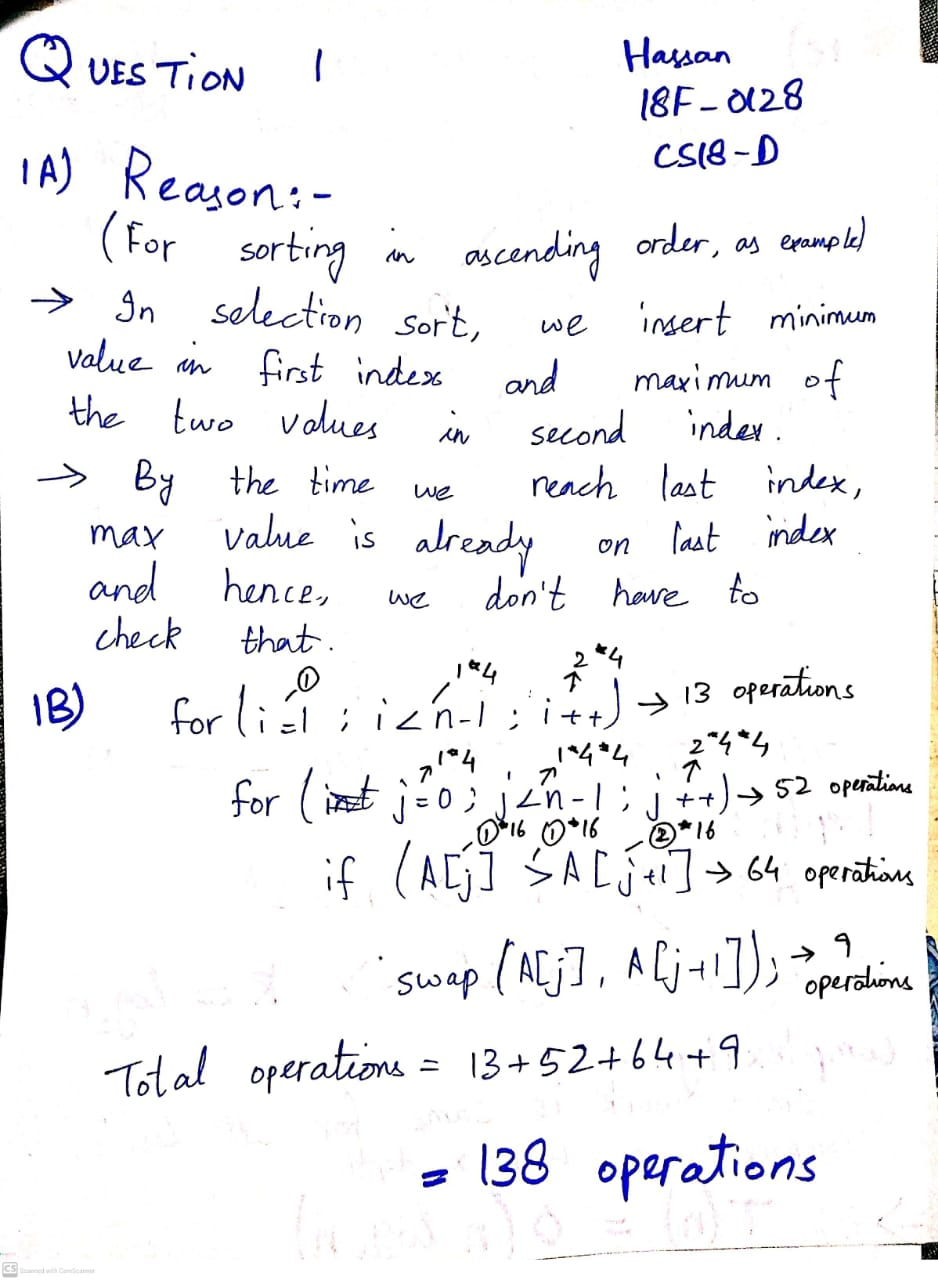 QUESTION 1
Hassan
18F-0128
CS18-D
1A) Reason:-
(For sorting in ascending order, as example)
→ In selection sort, we insert minimum
value in first index and maximum of
the two values in second index.
→ By the time we reach last index,
max value is already on last index
and hence, we don't have to
check that.
① 1*4 2*4
1B) for (i=1; i<n-1; i++) → 13 operations
1*4 1*4*4 2*4*4
for (int j=0; j<n-1; j++) → 52 operations
①*16 ①*16 ②*16
if (A[j] > A[j+1] → 64 operations
swap (A[j], A[j+1]); → 9 operations
Total operations = 13+52+64+9
= 138 operations
CS Scanned with CamScanner